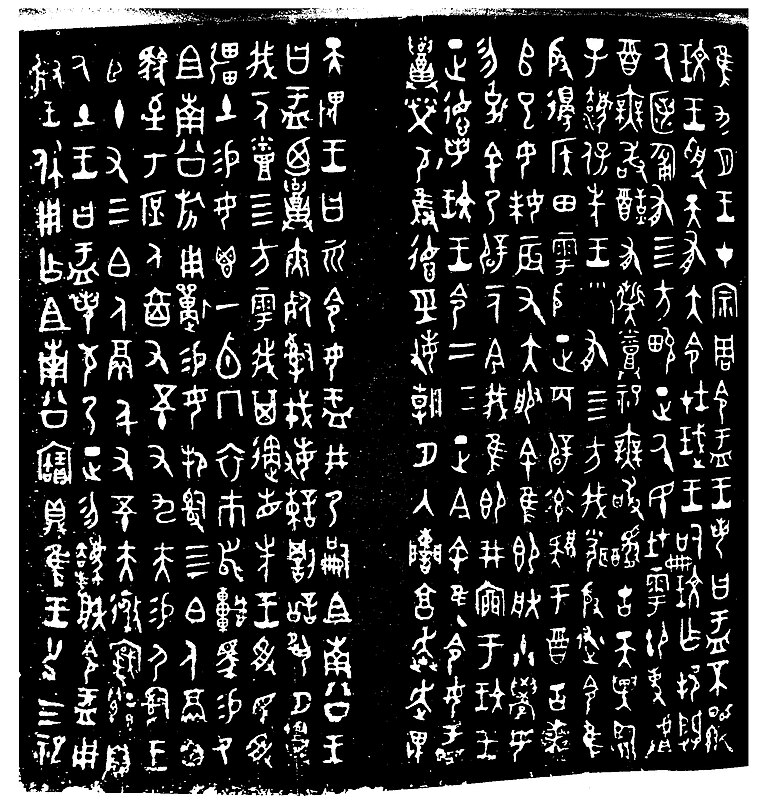 隹九月王才宗周令盂王若曰盂不顯
玟王受天有大令在珷王嗣玟乍邦闢
氒匿匍有四方畯正氒民在雩御事𠭯
酉無敢酖有髭烝祀無敢醻古天異臨
子灋保先王□有四方我聞殷述令隹
殷邊侯田雩殷正百辟率肄于酉古喪
𠂤巳女妹辰有大服余隹即朕小學女
勿克余乃辟一人今我隹即井㐭于玟王
正德若玟王令二三正今余隹令女盂
召榮敬雝德巠敏朝夕入讕享奔走畏
天畏王曰𠀠令女盂井乃嗣且南公王
曰盂廼召夾死司戎敏諫罰訟夙夕召
我一人烝四方雩我其遹省先王受民受
彊土易女鬯一卣冂衣巿舄車馬易乃
且南公旂用狩易女邦司四白人鬲自
馭至于庶人六百又五十又九夫易尸司王
臣十又三白人鬲千又五十夫𨒅寰遷自
氒土王曰盂若敬乃正勿灋朕令盂用
對王休用乍且南公寶鼎隹王廿又三祀